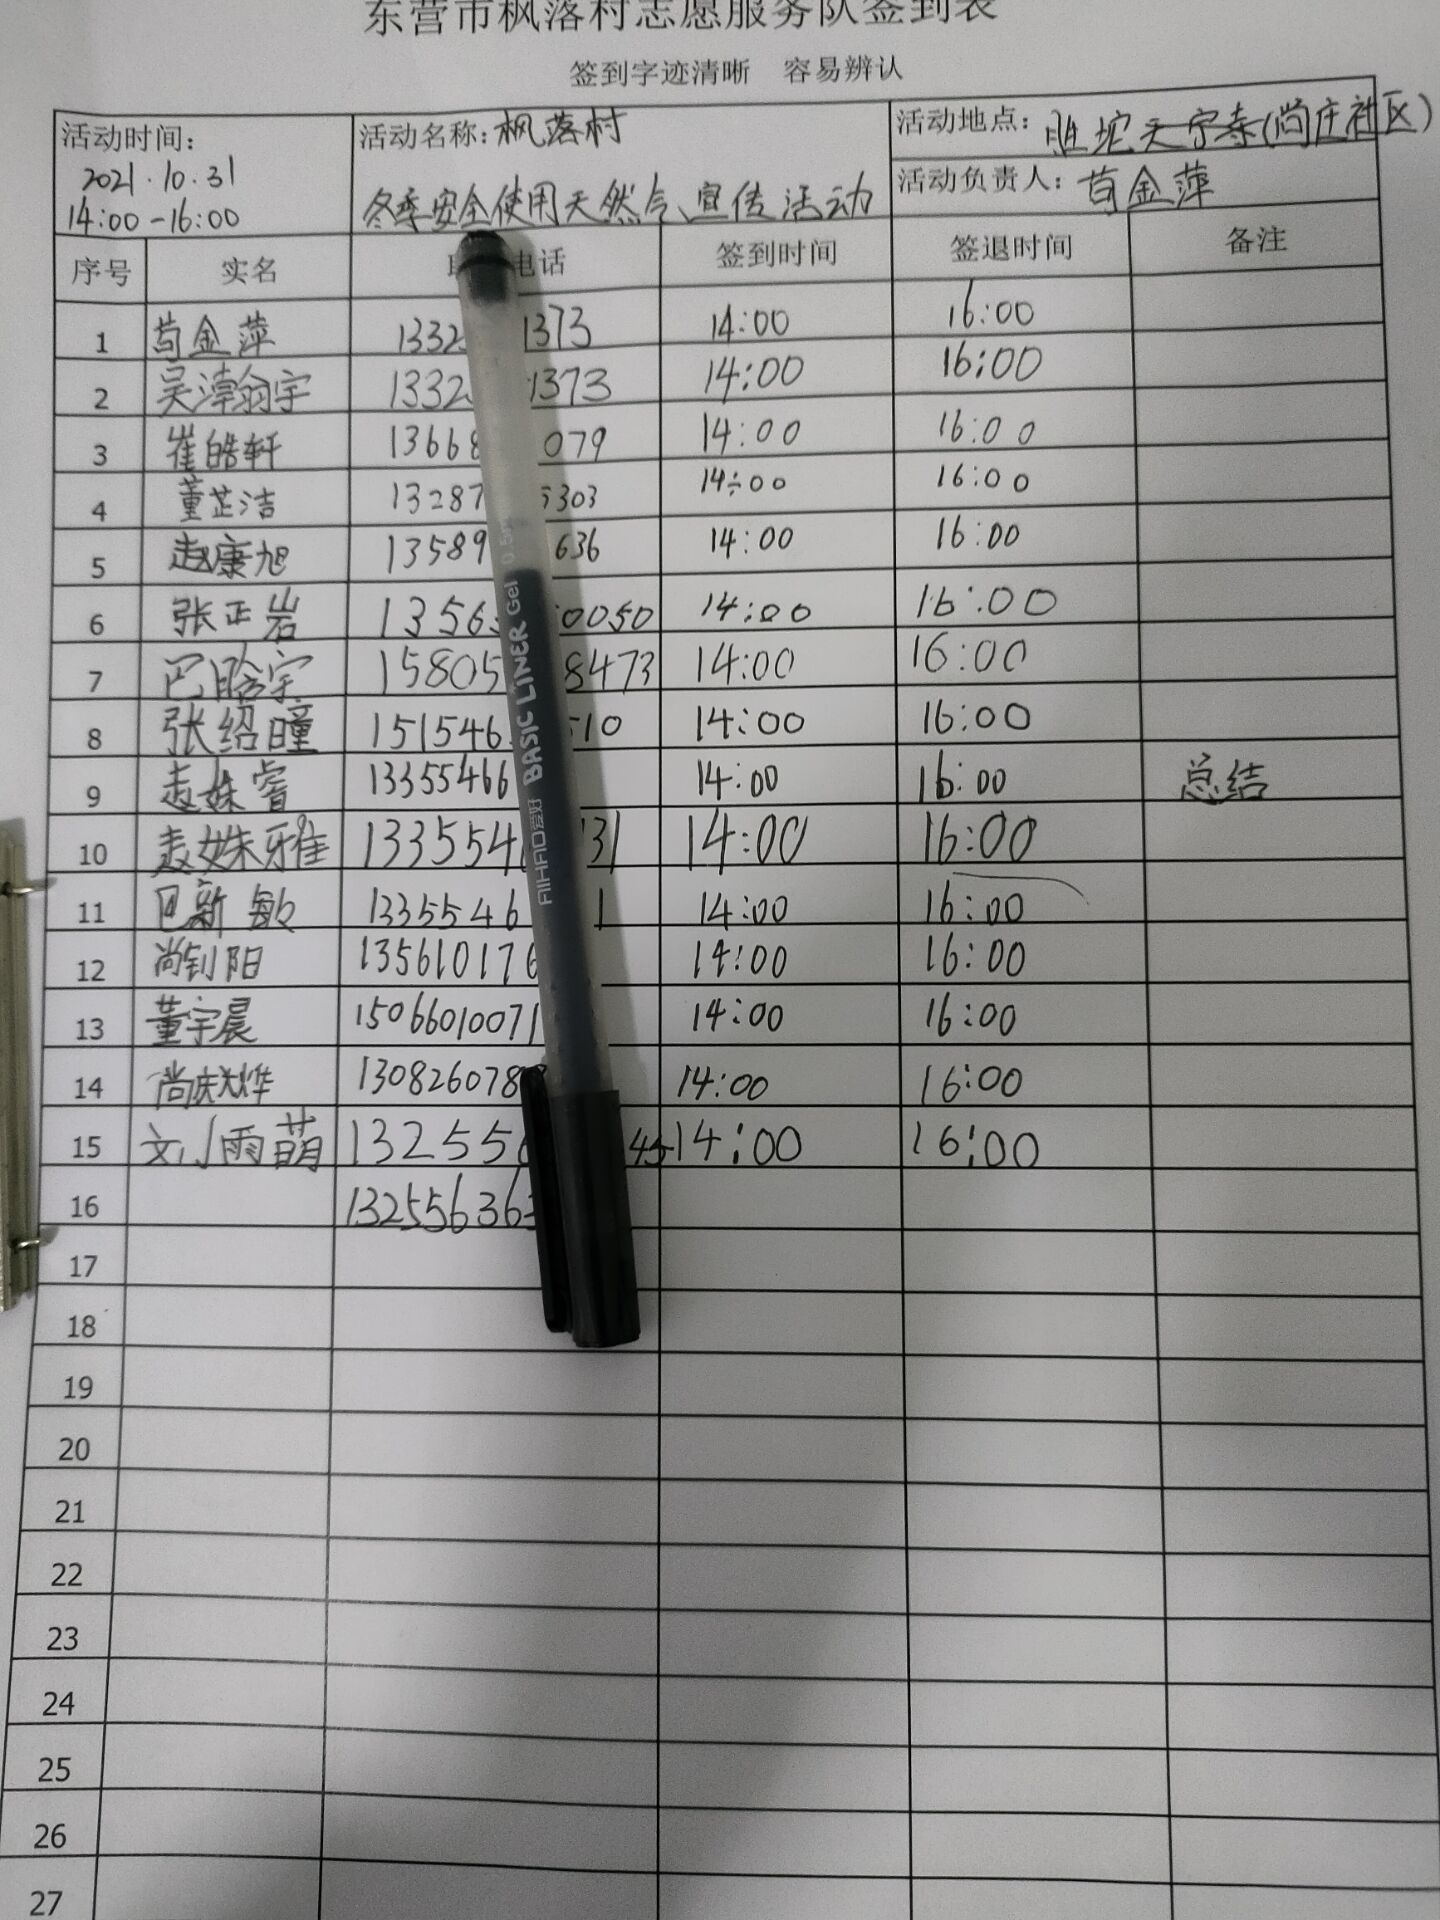 东营市枫落村志愿服务队签到表
签到字迹清晰 容易辨认
活动时间: 2021.10.31 14:00-16:00
活动名称: 枫落村 冬季安全使用天然气宣传活动
活动地点: 胜坨天宁寺(尚庄社区)
活动负责人: 苟金萍
序号 实名 电话 签到时间 签退时间 备注
1 苟金萍 1332 1373 14:00 16:00
2 吴漳翰宇 1332 1373 14:00 16:00
3 崔皓轩 13668 079 14:00 16:00
4 董芷洁 13287 5303 14:00 16:00
5 赵康旭 13589 636 14:00 16:00
6 张正岩 1356 0050 14:00 16:00
7 巴晗宇 15805 8473 14:00 16:00
8 张绍瞳 151546 510 14:00 16:00
9 姝睿 13355466 14:00 16:00 总结
10 姝雅 133554 31 14:00 16:00
11 巴新敏 1335546 1 14:00 16:00
12 尚钊阳 135610176 14:00 16:00
13 董宇晨 15066010071 14:00 16:00
14 尚庆烨 130826078 14:00 16:00
15 刘雨萌 132556 45 14:00 16:00
16 132556363
17
18
19
20
21
22
23
24
25
26
27
AIHAO爱好 BASIC LINER Gel 0.5